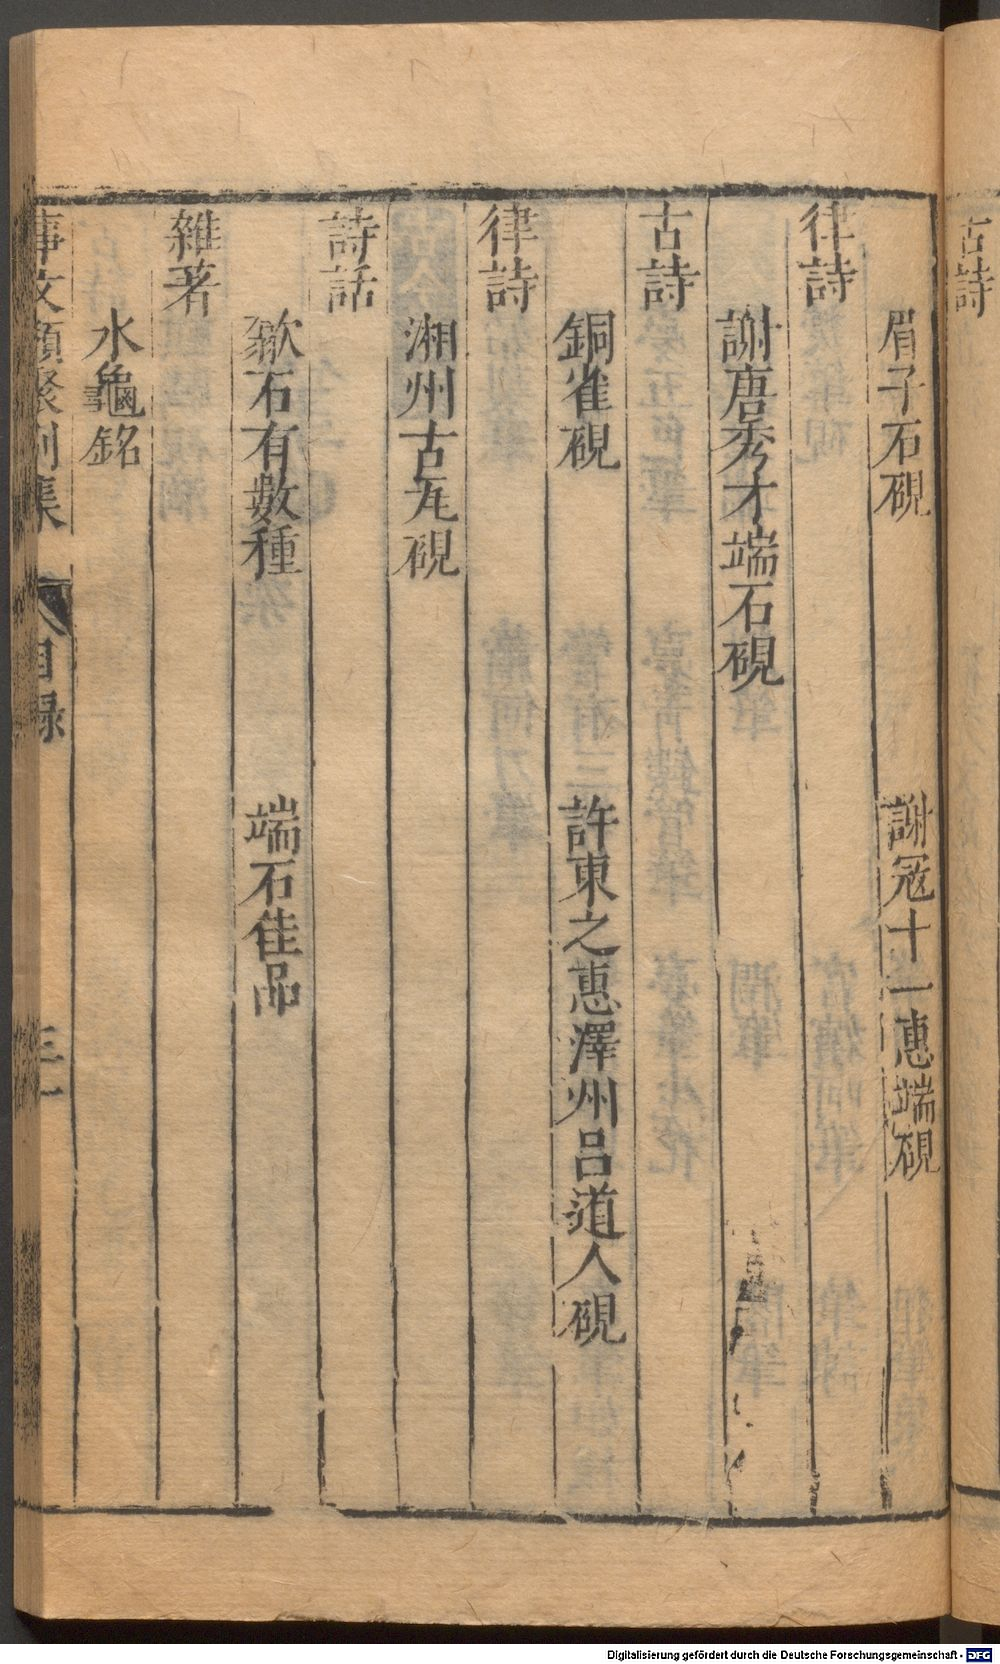 古詩
眉子石硯　謝冦十一惠端硯
律詩
謝唐秀才端石硯
古詩
銅雀硯　許東之惠澤州吕道人硯
律詩
湘州古瓦硯
詩話
歙石有數種　端石佳品
雜著
水龜銘
事文類聚别集　目録　三一
Digitalisierung gefördert durch die Deutsche Forschungsgemeinschaft - DFG